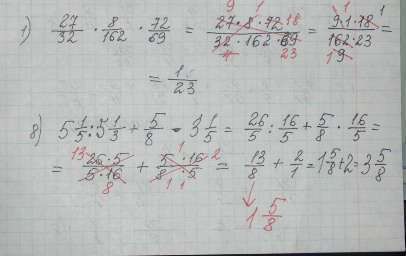 1) 27/32 · 8/162 · 72/69 = 27·8·72/32·162·69 = 9·1·18/162·23 =
= 1/23
8) 5 1/5 : 5 1/3 + 5/8 · 3 1/5 = 26/5 : 16/5 + 5/8 · 16/5 =
= 26·5/5·16 + 5·16/8·5 = 13/8 + 2/1 = 1 5/8 + 2 = 3 5/8
1 5/8